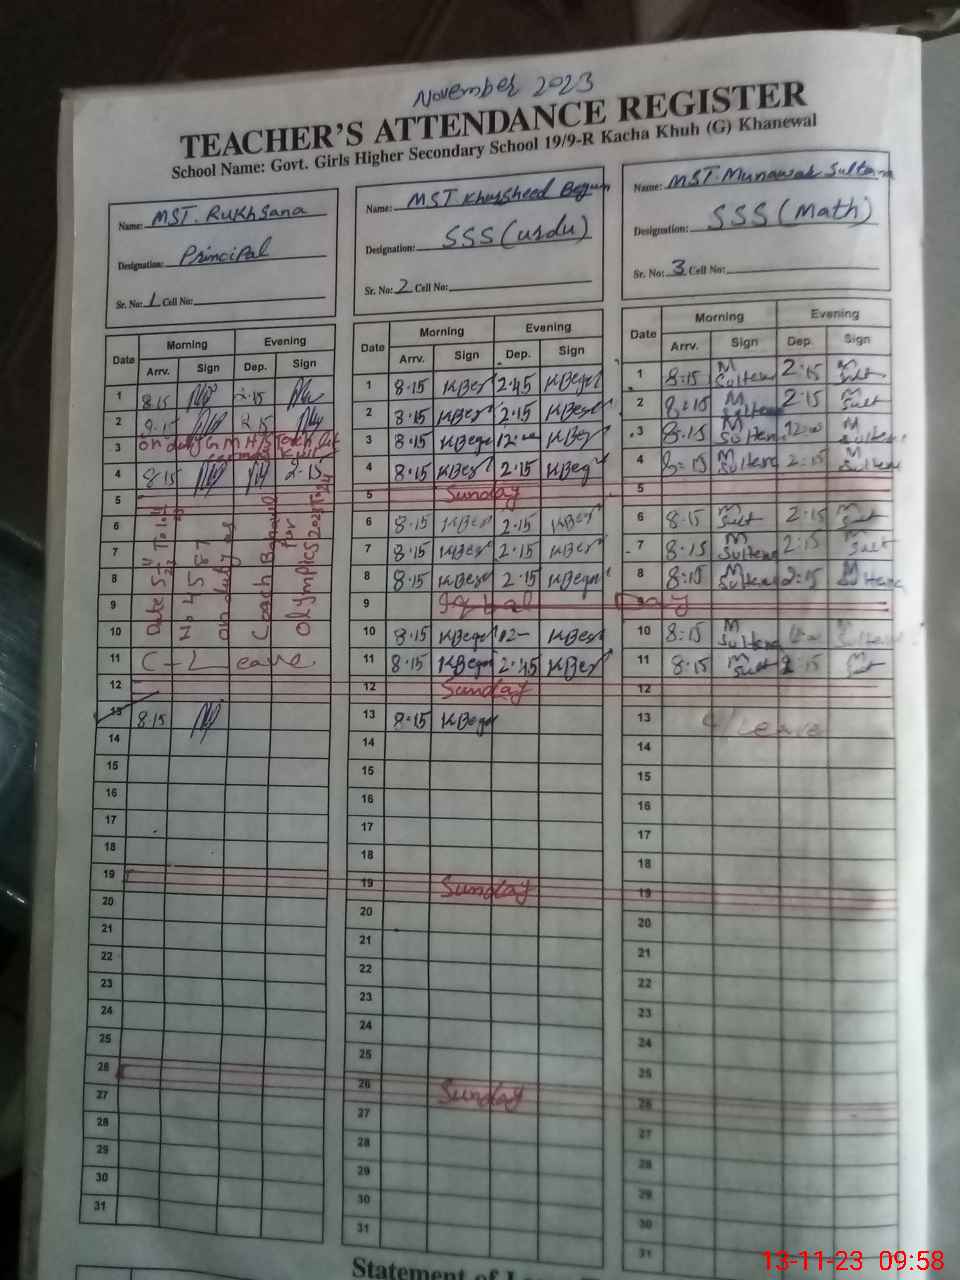 November 2023
TEACHER'S ATTENDANCE REGISTER
School Name: Govt. Girls Higher Secondary School 19/9-R Kacha Khuh (G) Khanewal
Name: MST. Rukhsana
Designation: Principal
Sr. No: 1 Cell No:
Date Morning Evening
Arrv. Sign Dep. Sign
1 8.15 2.15
2 8.15 2.15
3 on duty
4 8.15 2.15
5
6
7
8
9
10
11 C-Leave
12
13 8.15
14
15
16
17
18
19
20
21
22
23
24
25
26
27
28
29
30
31
Name: MST Khursheed Begum
Designation: SSS (Urdu)
Sr. No: 2 Cell No:
Date Morning Evening
Arrv. Sign Dep. Sign
1 8.15 KBeg 2.45 KBegm
2 8.15 KBeg 2.15 KBeg
3 8.15 KBegm 12 KBeg
4 8.15 KBeg 2.15 KBeg
5 Sunday
6 8.15 KBeg 2.15 KBeg
7 8.15 KBeg 2.15 KBeg
8 8.15 KBegm 2.15 KBegm
9 Iqbal Day
10 8.15 KBegm 12- KBegm
11 8.15 KBegm 2.45 KBeg
12 Sunday
13 8.15 KBegm
14
15
16
17
18
19 Sunday
20
21
22
23
24
25
26 Sunday
27
28
29
30
31
Name: MST. Munawar Sultana
Designation: SSS (Math)
Sr. No: 3 Cell No:
Date Morning Evening
Arrv. Sign Dep. Sign
1 8:15 M Sultana 2:15 M Sult
2 8:15 M Sultana 2:15 M Sult
3 8.15 M Sultana 12:00 M Sultana
4 8:15 M Sultana 2:15 M Sultana
5
6 8.15 M Sult 2:15 M Sult
7 8.15 M Sultana 2:15 M Sult
8 8:15 M Sultana 2:15 M Sultana
10 8:15 M Sultana M Sultana
11 8.15 M Sult 2:15 M Sult
12
13 C/Leave
14
15
16
17
18
19
20
21
22
23
24
25
26
27
28
29
30
31
Statement of
13-11-23 09:58